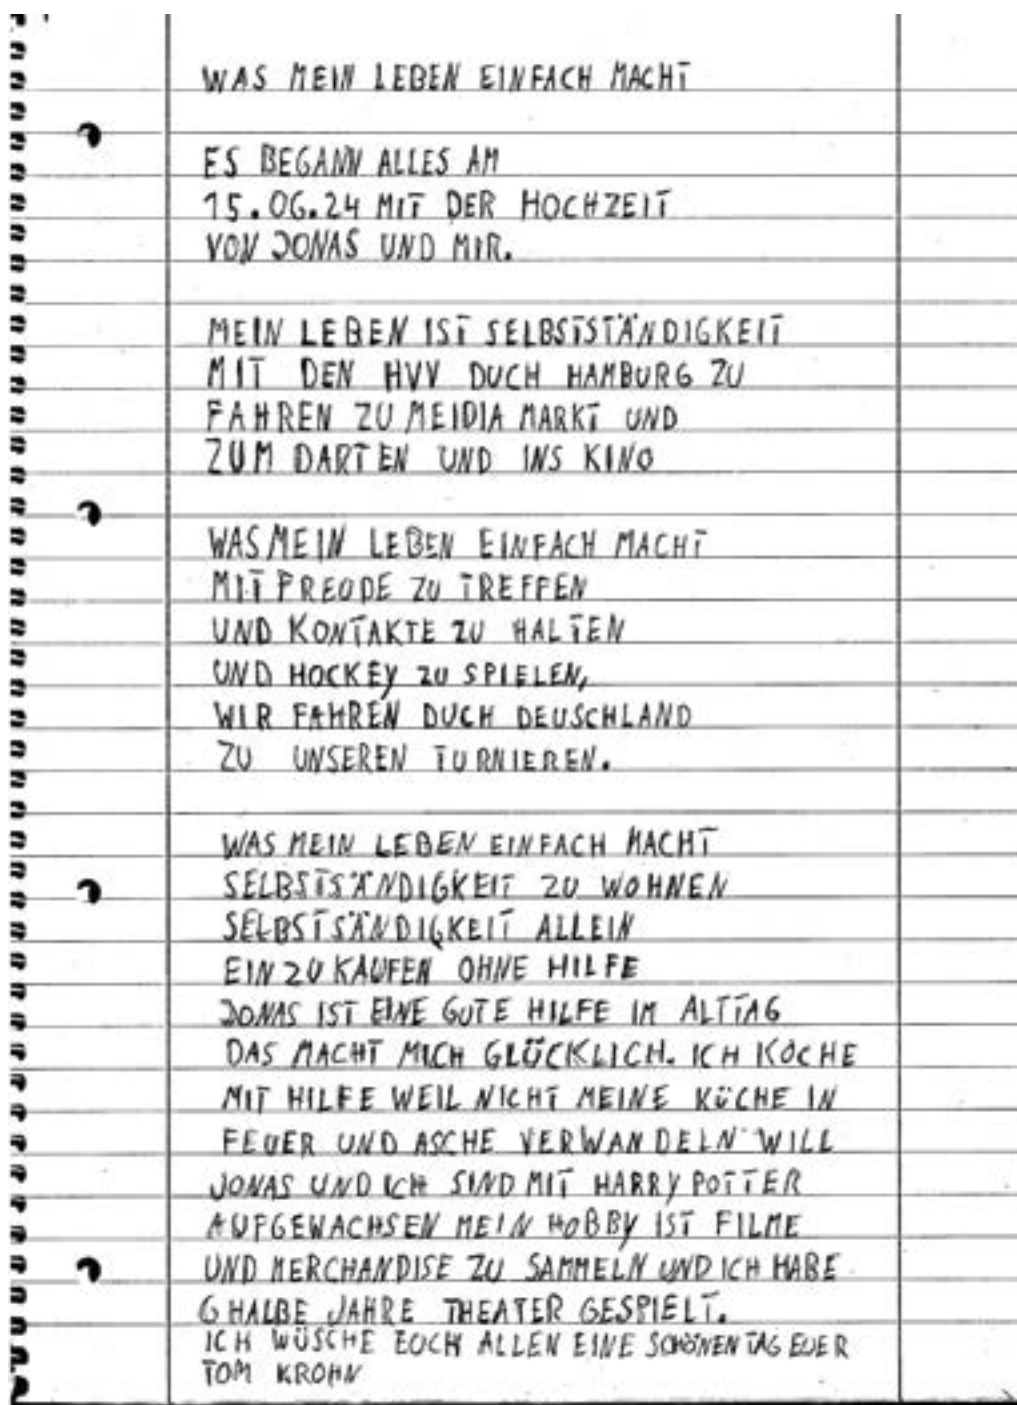 WAS MEIN LEBEN EINFACH MACHT
ES BEGANN ALLES AM
15.06.24 MIT DER HOCHZEIT
VON JONAS UND MIR.
MEIN LEBEN IST SELBSTSTÄNDIGKEIT
MIT DEN HVV DUCH HAMBURG ZU
FAHREN ZU MEIDIA MARKT UND
ZUM DARTEN UND INS KINO
WAS MEIN LEBEN EINFACH MACHT
MIT FREUDE ZU TREFFEN
UND KONTAKTE ZU HALTEN
UND HOCKEY ZU SPIELEN,
WIR FAHREN DUCH DEUSCHLAND
ZU UNSEREN TURNIEREN.
WAS MEIN LEBEN EINFACH MACHT
SELBSTSÄNDIGKEIT ZU WOHNEN
SELBSTSÄNDIGKEIT ALLEIN
EIN ZU KAUFEN OHNE HILFE
JONAS IST EINE GUTE HILFE IM ALTTAG
DAS MACHT MICH GLÜCKLICH. ICH KOCHE
MIT HILFE WEIL NICHT MEINE KÜCHE IN
FEUER UND ASCHE VERWANDELN WILL
JONAS UND ICH SIND MIT HARRY POTTER
AUFGEWACHSEN MEIN HOBBY IST FILME
UND MERCHANDISE ZU SAMMELN UND ICH HABE
6 HALBE JAHRE THEATER GESPIELT.
ICH WÜSCHE EUCH ALLEN EINE SCHÖNEN TAG EUER
TOM KROHN